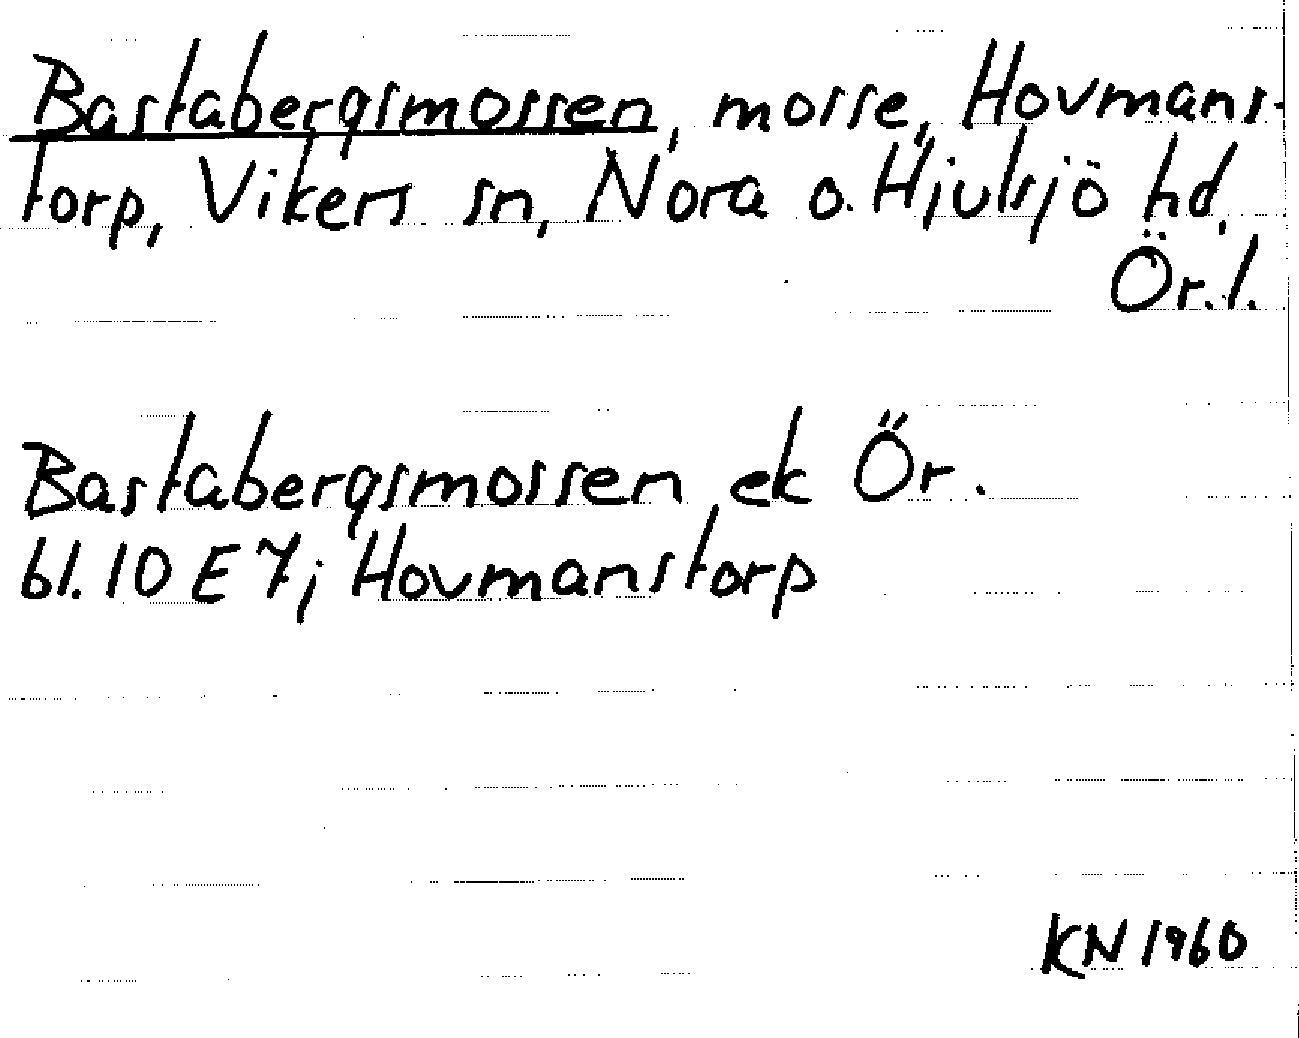 Bastabergsmossen, mosse, Hovmans-
torp, Vikers sn, Nora o. Hjulsjö hd,
Ör. l.
Bastabergsmossen ek Ör.
bl. 10 E 7; Hovmanstorp
KN 1960